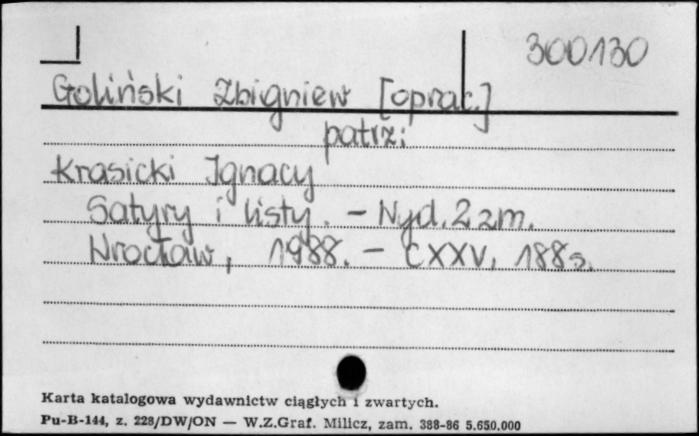 300130
Goliński Zbigniew [oprac.]
patrz:
Krasicki Ignacy
Satyry i listy. – Wyd. 2 zm.
Wrocław, 1988. – CXXV, 188 s.
Karta katalogowa wydawnictw ciągłych i zwartych.
Pu-B-144, z. 228/DW/ON — W.Z.Graf. Milicz, zam. 388-86 5.650.000